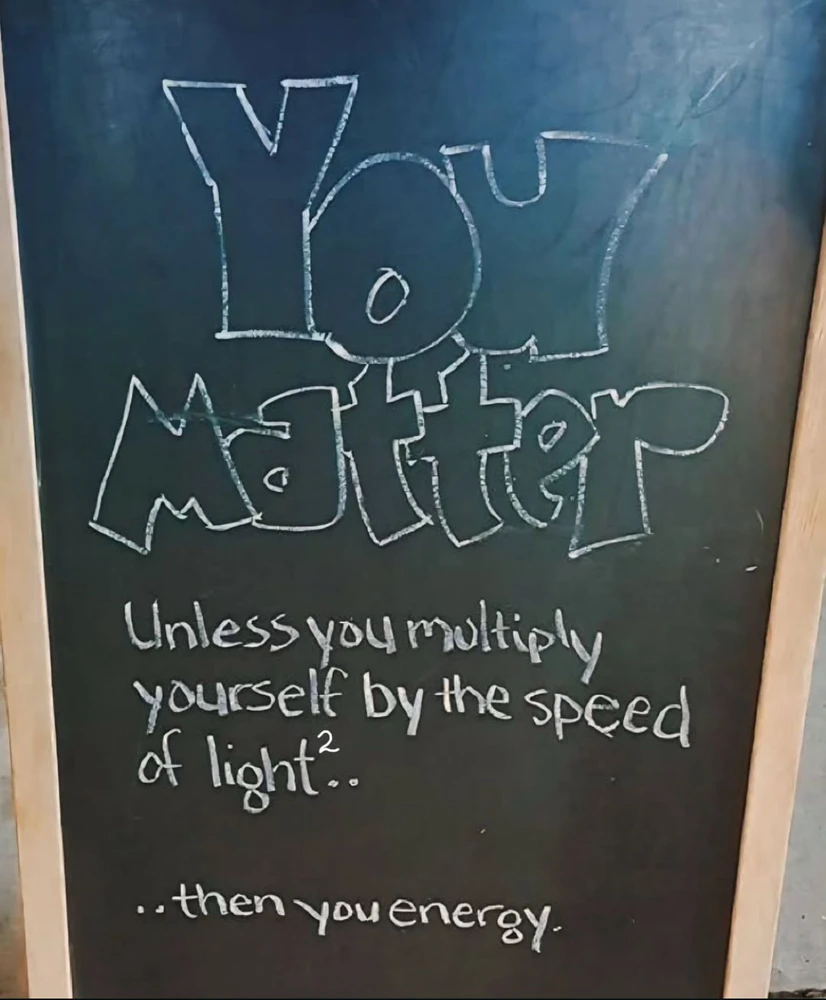 You
Matter
Unless you multiply
yourself by the speed
of light²..
..then you energy.